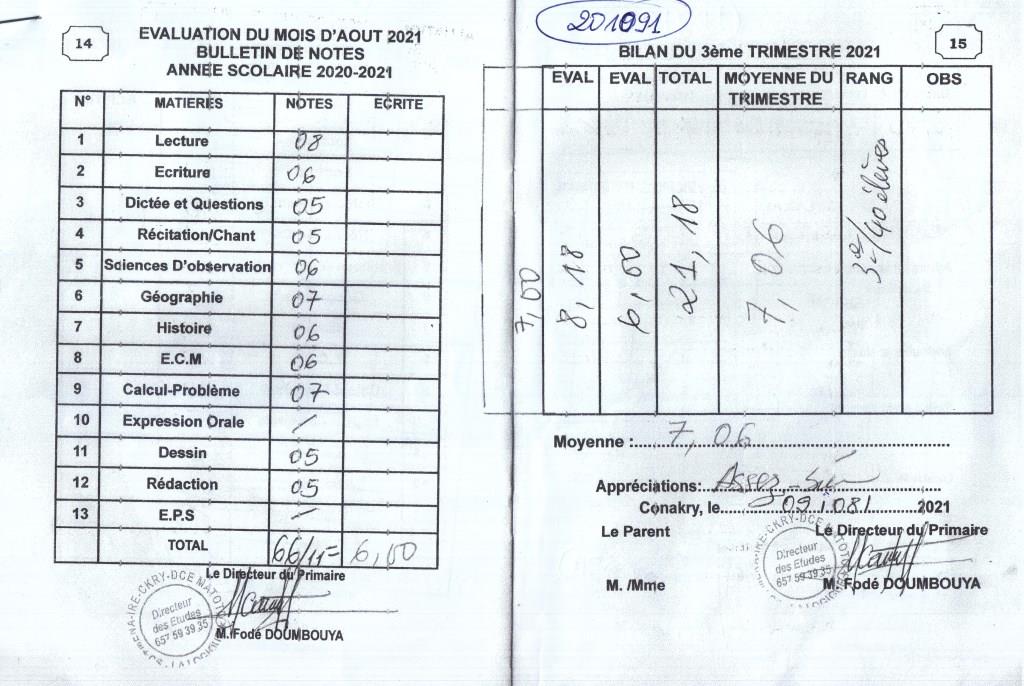 14
EVALUATION DU MOIS D'AOUT 2021
BULLETIN DE NOTES
ANNEE SCOLAIRE 2020-2021
N° MATIERES NOTES ECRITE
1 Lecture 08
2 Ecriture 06
3 Dictée et Questions 05
4 Récitation/Chant 05
5 Sciences D'observation 06
6 Géographie 07
7 Histoire 06
8 E.C.M 06
9 Calcul-Problème 07
10 Expression Orale /
11 Dessin 05
12 Rédaction 05
13 E.P.S /
TOTAL 66/11= 6,00
Le Directeur du Primaire
Directeur
des Etudes
657 59 39 35
M. Fodé DOUMBOUYA
201091
15
BILAN DU 3ème TRIMESTRE 2021
EVAL EVAL TOTAL MOYENNE DU TRIMESTRE RANG OBS
7,00 8,18 6,00 21,18 7,06 3e/40 élèves
Moyenne :....7,06....
Appréciations:..Assez-....
Conakry, le....09/08/....2021
Le Parent Le Directeur du Primaire
Directeur
des Etudes
657 59 39 35
M. /Mme M. Fodé DOUMBOUYA